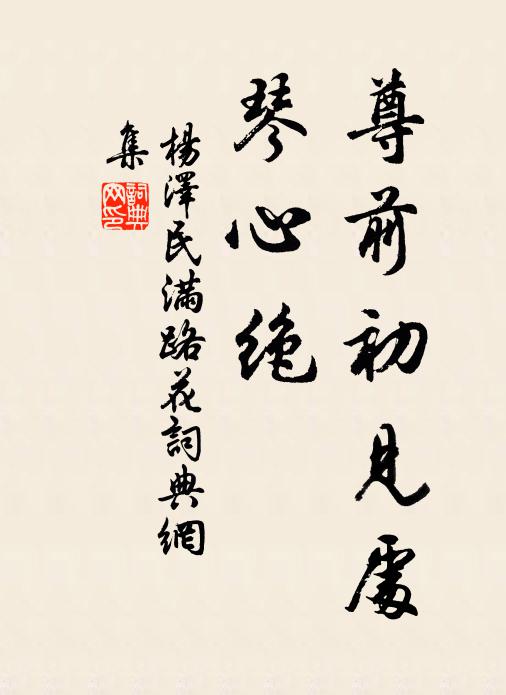 尊前初見處
琴心絶
楊澤民滿路花詞典網
集
詞典
网印